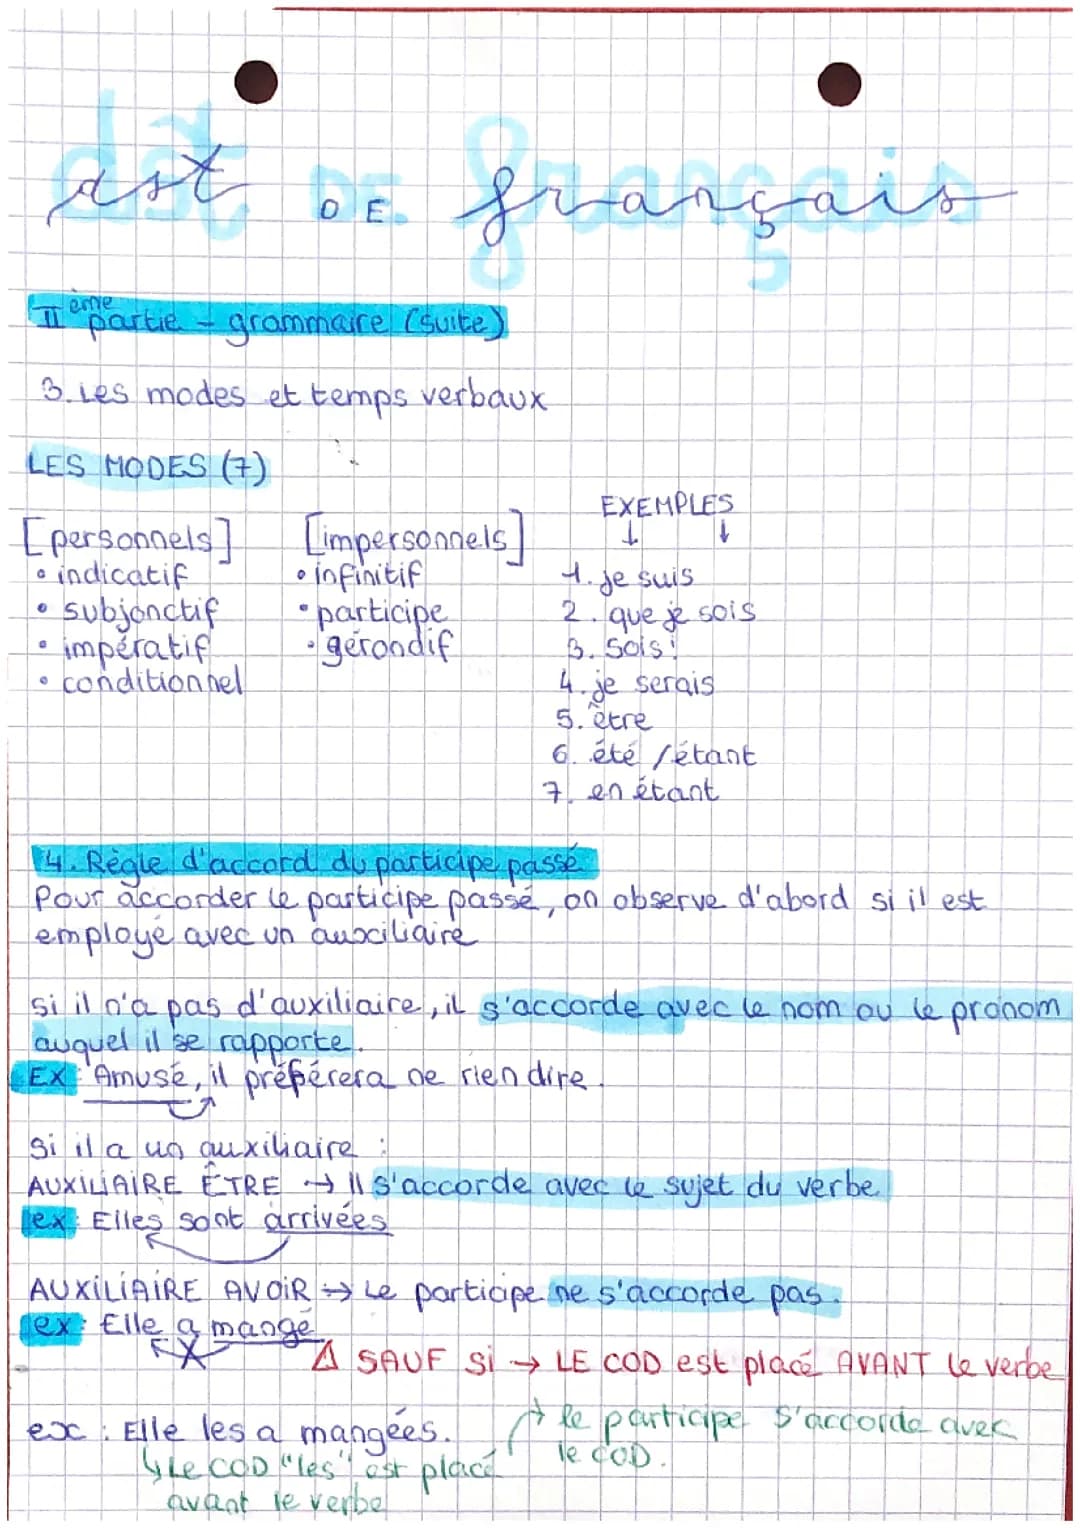 dst DE français
IIème partie - grammaire (suite)
3. Les modes et temps verbaux
LES MODES (7)
EXEMPLES
[personnels] [impersonnels]
• indicatif • infinitif 1. je suis
• subjonctif • participe 2. que je sois
• impératif • gérondif 3. Sois!
• conditionnel 4. je serais
5. être
6. été / étant
7. en étant
4. Règle d'accord du participe passé
Pour accorder le participe passé, on observe d'abord si il est
employé avec un auxiliaire
si il n'a pas d'auxiliaire, il s'accorde avec le nom ou le pronom
auquel il se rapporte.
EX : Amusé, il préférera ne rien dire.
Si il a un auxiliaire :
AUXILIAIRE ÊTRE → Il s'accorde avec le sujet du verbe
ex : Elles sont arrivées
AUXILIAIRE AVOIR → Le participe ne s'accorde pas.
ex : Elle a mangé
⚠ SAUF Si → LE COD est placé AVANT le verbe
ex : Elle les a mangées. → le participe s'accorde avec
le COD.
↳ Le COD "les" est placé
avant le verbe